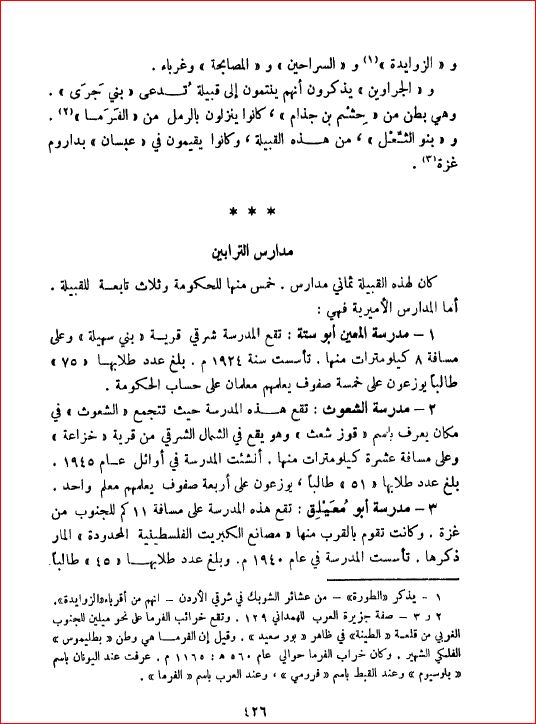 و « الزوايدة »(١) و « السراحين » و « المصابحة » وغرباء .
و « الجراوين » يذكرون أنهم ينتمون إلى قبيلة تُدعى « بني جَرَى » .
وهي بطن من « حِشْم بن جذام » ، كانوا ينزلون بالرمل من « الفَرَما »(٢) .
و « بنو الثَّعْل » ، من هذه القبيلة ، وكانوا يقيمون في « عبسان » بداروم
غزة(٣) .
* * *
مدارس الترابين
كان لهذه القبيلة ثماني مدارس . خمس منها للحكومة وثلاث تابعة للقبيلة .
أما المدارس الأميرية فهي :
١ – مدرسة المعين أبو ستة : تقع المدرسة شرقي قرية « بني سهيلة » وعلى
مسافة ٨ كيلومترات منها . تأسست سنة ١٩٢٤ م . بلغ عدد طلابها « ٧٥ »
طالباً يوزعون على خمسة صفوف يعلمهم معلمان على حساب الحكومة .
٢ – مدرسة الشعوث : تقع هذه المدرسة حيث تتجمع « الشعوث » في
مكان يعرف باسم « قوز شعث » وهو يقع في الشمال الشرقي من قرية « خزاعة »
وعلى مسافة عشرة كيلومترات منها . أنشئت المدرسة في أوائل عام ١٩٤٥ .
بلغ عدد طلابها « ٥١ » طالباً ، يوزعون على أربعة صفوف يعلمهم معلم واحد .
٣ – مدرسة أبو مُعَيْلِق : تقع هذه المدرسة على مسافة ١١ كم للجنوب من
غزة . وكانت تقوم بالقرب منها « مصانع الكبريت الفلسطينية المحدودة » المار
ذكرها . تأسست المدرسة في عام ١٩٤٠ م. وبلغ عدد طلابها « ٤٥ » طالباً.
١ - يذكر «الطورة» – من عشائر الشوبك في شرقي الأردن – انهم من أقرباء«الزوايدة».
٢ و ٣ – صفة جزيرة العرب للهمداني ١٢٩ . وتقع خرائب الفرما على نحو ميلين للجنوب
الغربي من قلعة « الطينة » في ظاهر « بور سعيد » . وقيل إن الفرما هي وطن « بطليموس »
الفلكي الشهير . وكان خراب الفرما حوالي عام ٥٦٠ هـ : ١١٦٥ م . عرفت عند اليونان باسم
« بلوسيوم » وعند القبط باسم « فرومي » ، وعند العرب باسم « الفرما » .
٤٢٦